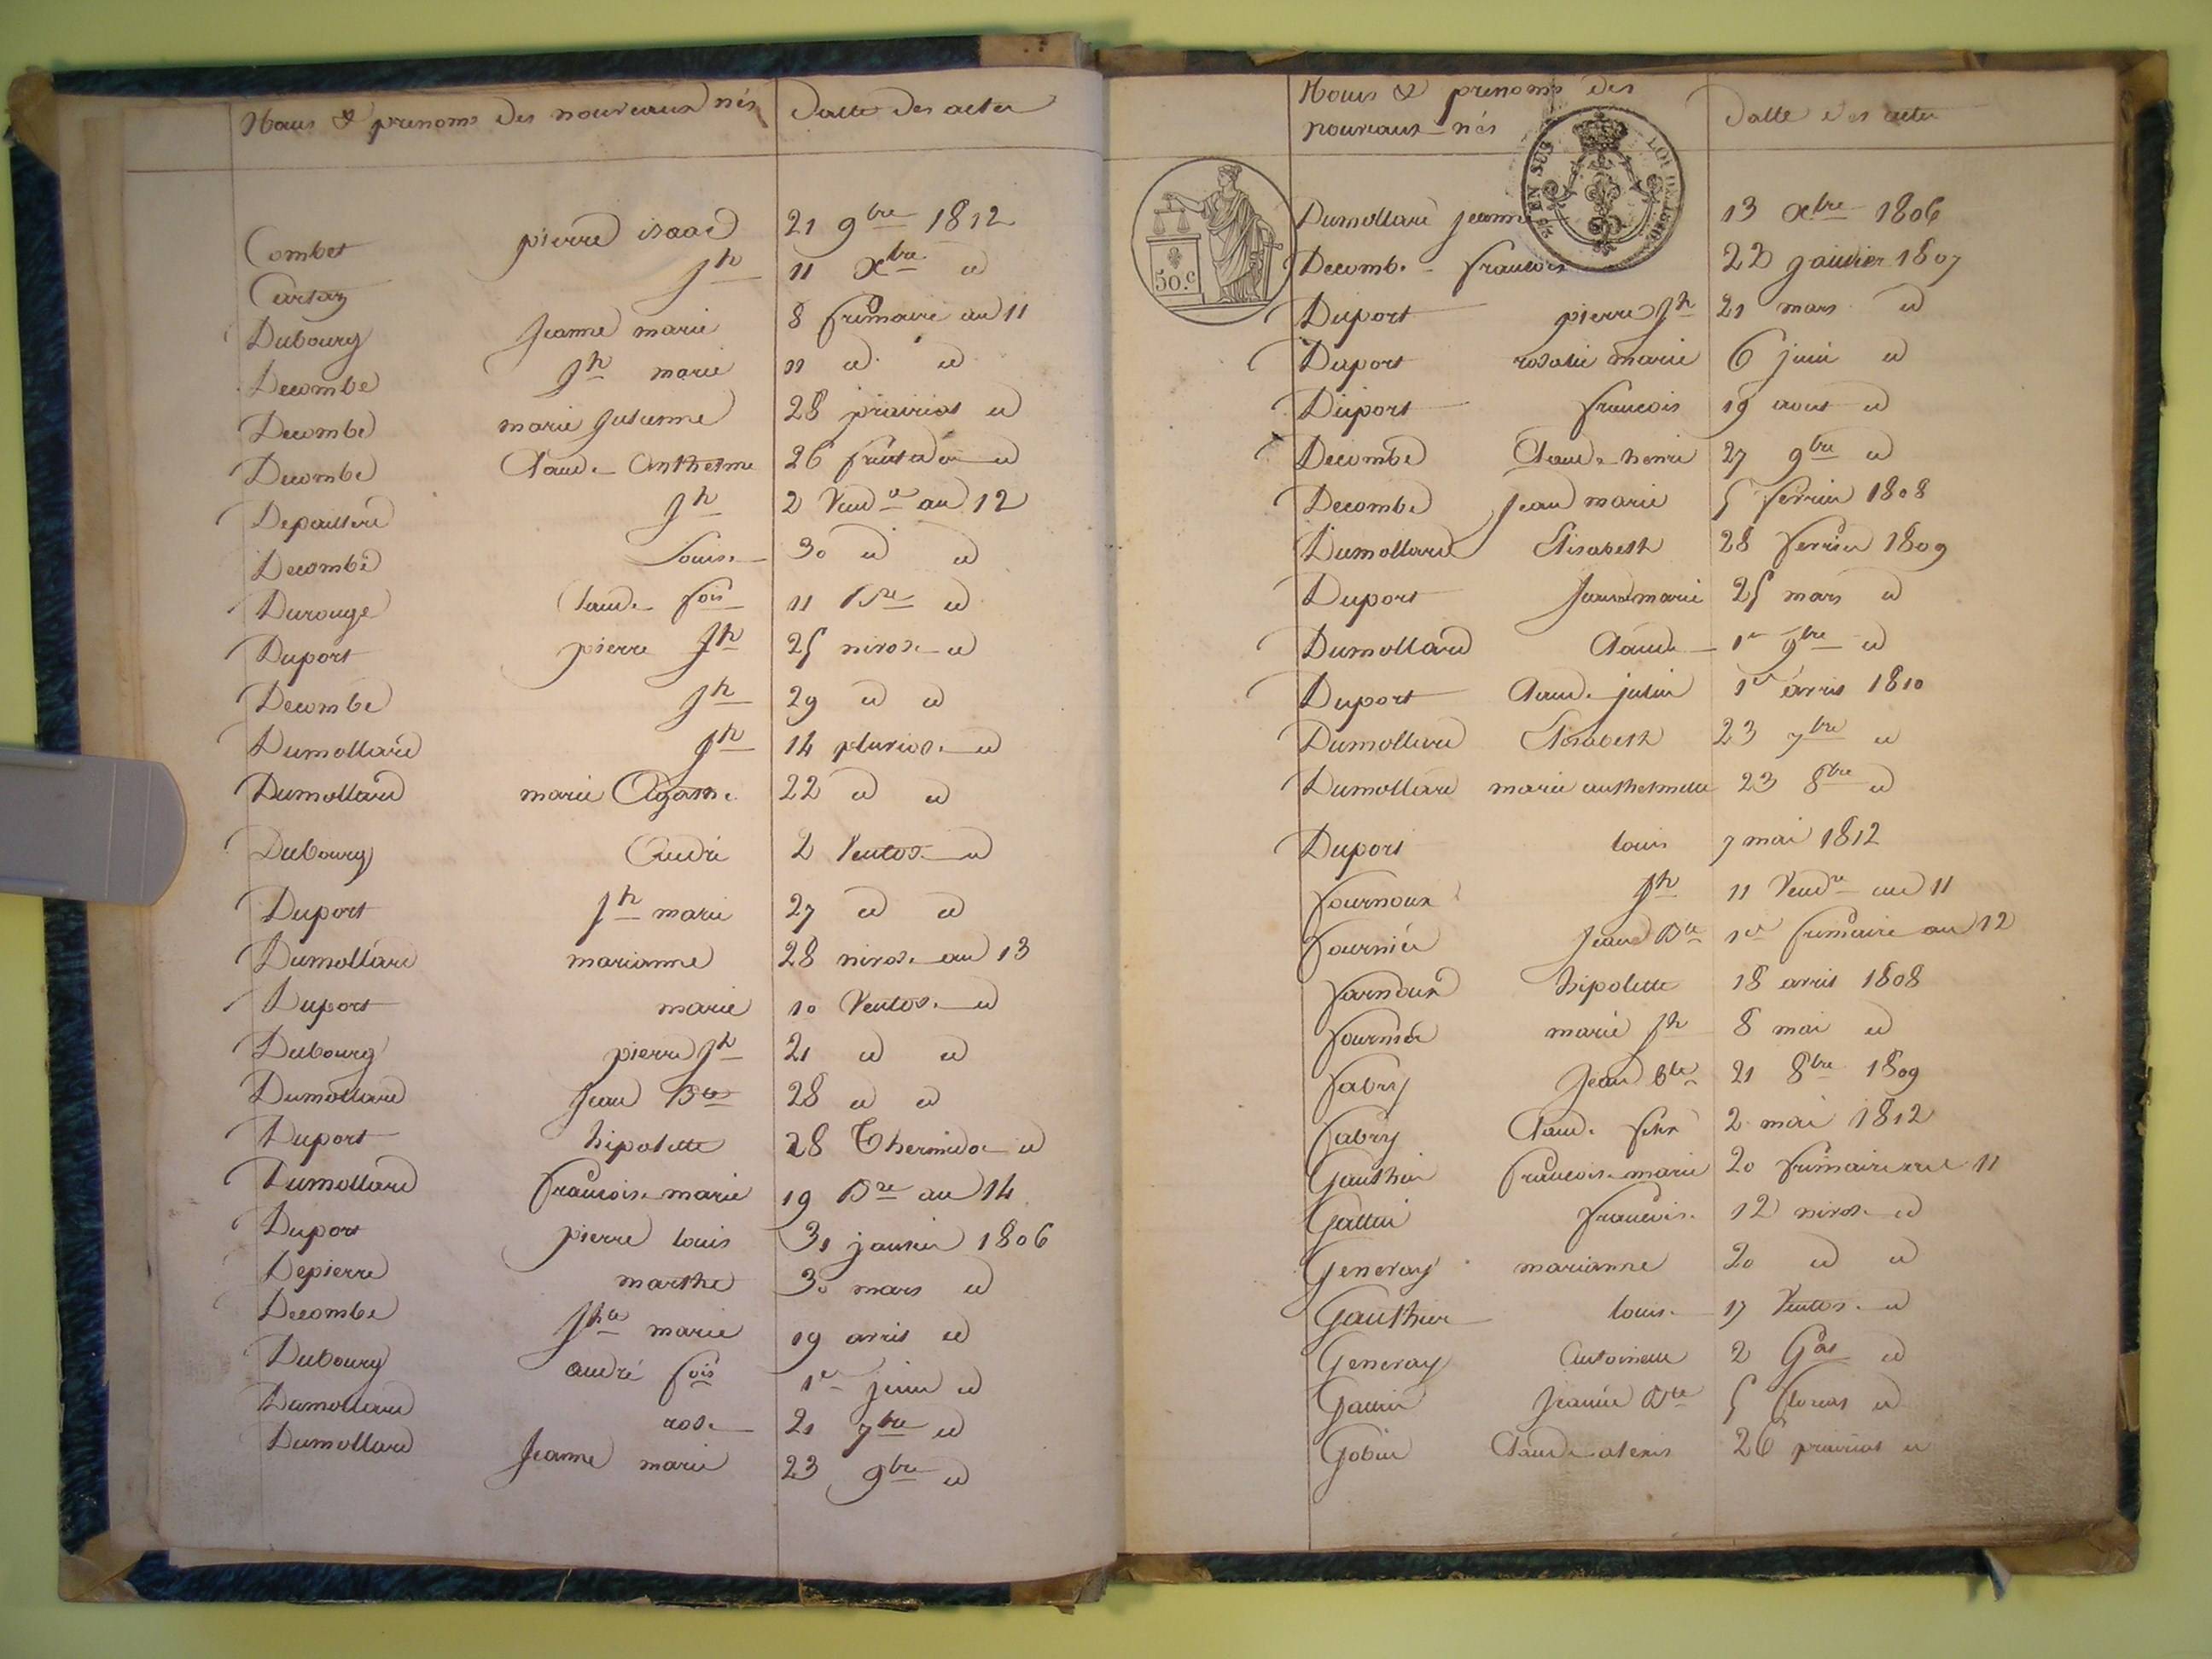 Noms & prenoms des nouveaux nés Datte des actes
Combet pierre isaac 21 9bre 1812
Cartaz Jh 11 Xbre id
Dubourg Jeanne marie 8 frimaire an 11
Decombe Jh marie 11 id id
Decombe marie Julienne 28 prairial id
Decombe Claude Anthelme 26 fructidor id
Depaillere Jh 2 Vendre an 12
Decombe Louise 30 id id
Durouge Claude fois 11 Bre id
Duport pierre Jh 25 nivose id
Decombe Jh 29 id id
Dumollard Jh 14 pluviose id
Dumollard marie Agathe 22 id id
Dubourg André 2 Ventose id
Duport Jh marie 27 id id
Dumollard marianne 28 nivose an 13
Duport marie 10 Ventose id
Dubourg pierre Jh 21 id id
Dumollard Jean Bte 28 id id
Duport hipolitte 28 Thermidor id
Dumollard francoise marie 19 Bre an 14
Duport pierre louis 31 janvier 1806
Depierre marthe 30 mars id
Decombe Jhte marie 19 avril id
Dubourg andré fois 1er juin id
Dumollard rose 21 7bre id
Dumollard Jeanne marie 23 9bre id
Noms & prenoms des
nouveaux nés Datte des actes
LOI DE 1816
EN SUS
50.c
Dumollard jeanne 13 Xbre 1806
Decombe francois 22 janvier 1807
Duport pierre Jh 21 mars id
Duport rosalie marie 6 juin id
Duport francois 19 aout id
Decombe Claude henri 27 9bre id
Decombe Jean marie 5 fevrier 1808
Dumollard Elisabeth 28 fevrier 1809
Duport Jean marie 25 mars id
Dumollard Claude 1er 9bre id
Duport Claude julien 1er avril 1810
Dumollard Elisabeth 23 7bre id
Dumollard marie anthelmette 23 8bre id
Duport louis 7 mai 1812
fournoux Jh 11 Vendre an 11
fournier Jean Bte 1er frimaire an 12
farnoux hipolitte 18 avril 1808
fournier marie Jh 8 mai id
fabry Jean Bte 21 8bre 1809
fabry Claude felix 2 mai 1812
Gauthier francoise marie 20 frimaire an 11
Gallin francoise 12 nivose id
Generay marianne 20 id id
Gauthier louise 17 Ventose id
Generay Antoinette 2 Gal id
Gallin Jeanne Bte 5 floreal id
Gobin Claude alexis 26 prairial id